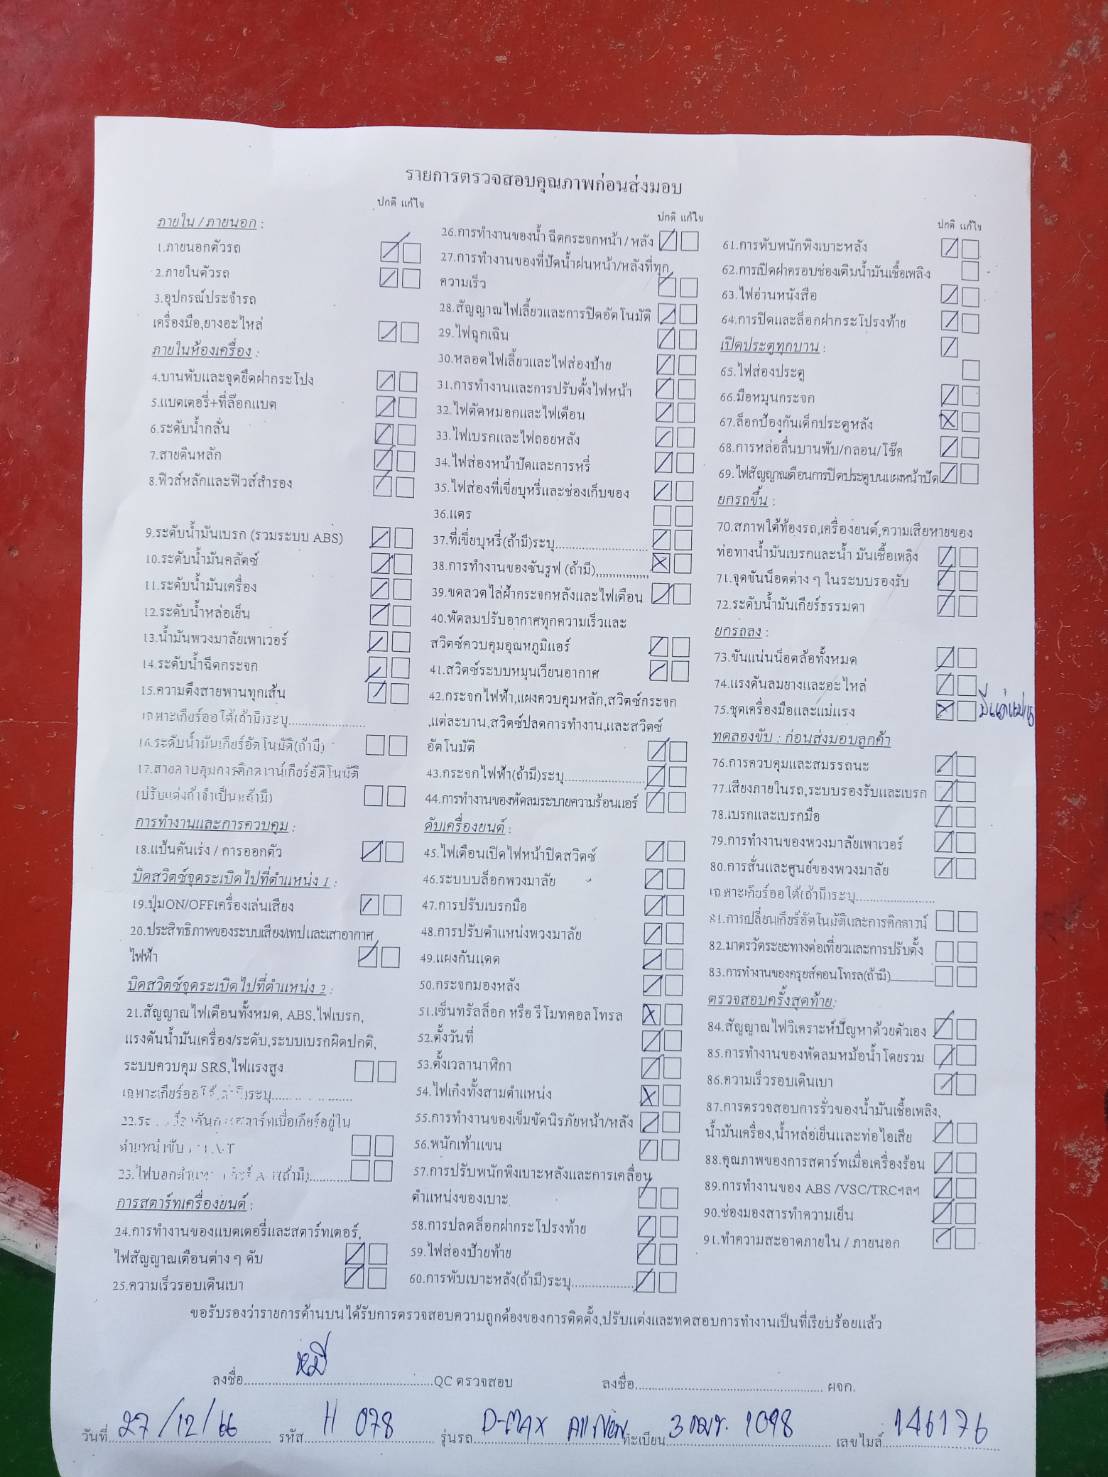 รายการตรวจสอบคุณภาพก่อนส่งมอบ
ปกติ แก้ไข
ภายใน / ภายนอก :
1.ภายนอกตัวรถ
2.ภายในตัวรถ
3.อุปกรณ์ประจำรถ
เครื่องมือ,ยางอะไหล่
ภายในห้องเครื่อง :
4.บานพับและจุดยึดฝากระโปง
5.แบตเตอรี่+ที่ล๊อกแบต
6.ระดับน้ำกลั่น
7.สายดินหลัก
8.ฟิวส์หลักและฟิวส์สำรอง
9.ระดับน้ำมันเบรก (รวมระบบ ABS)
10.ระดับน้ำมันคลัตช์
11.ระดับน้ำมันเครื่อง
12.ระดับน้ำหล่อเย็น
13.น้ำมันพวงมาลัยเพาเวอร์
14.ระดับน้ำฉีดกระจก
15.ความตึงสายพานทุกเส้น
เฉพาะเกียร์ออโต้(ถ้ามี)ระบุ....................
16.ระดับน้ำมันเกียร์อัตโนมัติ(ถ้ามี)
17.สายควบคุมการคิกดาวน์เกียร์อัตโนมัติ
(ปรับแต่งถ้าจำเป็น/ถ้ามี)
การทำงานและการควบคุม :
18.แป้นคันเร่ง / การออกตัว
บิดสวิตช์จุดระเบิดไปที่ตำแหน่ง 1 :
19.ปุ่มON/OFFเครื่องเล่นเสียง
20.ประสิทธิภาพของระบบเสียงเทปและเสาอากาศ
ไฟฟ้า
บิดสวิตช์จุดระเบิดไปที่ตำแหน่ง 2 :
21.สัญญาณไฟเตือนทั้งหมด, ABS,ไฟเบรก,
แรงดันน้ำมันเครื่อง/ระดับ,ระบบเบรกผิดปกติ,
ระบบควบคุม SRS,ไฟแรงสูง
23.ไฟบอกตำแหน่ง
การสตาร์ทเครื่องยนต์ :
24.การทำงานของแบตเตอรี่และสตาร์ทเตอร์,
ไฟสัญญาณเตือนต่าง ๆ ดับ
25.ความเร็วรอบเดินเบา
ปกติ แก้ไข
26.การทำงานของน้ำ ฉีดกระจกหน้า / หลัง
27.การทำงานของที่ปัดน้ำฝนหน้า/หลังที่ทุก
ความเร็ว
28.สัญญาณไฟเลี้ยวและการปิดอัตโนมัติ
29.ไฟฉุกเฉิน
30.หลอดไฟเลี้ยวและไฟส่องป้าย
31.การทำงานและการปรับตั้งไฟหน้า
32.ไฟตัดหมอกและไฟเตือน
33.ไฟเบรกและไฟถอยหลัง
34.ไฟส่องหน้าปัดและการหรี่
35.ไฟส่องที่เขี่ยบุหรี่และช่องเก็บของ
36.แตร
37.ที่เขี่ยบุหรี่(ถ้ามี)ระบุ........................
38.การทำงานของซันรูฟ (ถ้ามี)................
39.ขดลวดไล่ฝ้ากระจกหลังและไฟเตือน
40.พัดลมปรับอากาศทุกความเร็วและ
สวิตช์ควบคุมอุณหภูมิแอร์
41.สวิตช์ระบบหมุนเวียนอากาศ
42.กระจกไฟฟ้า,แผงควบคุมหลัก,สวิตช์กระจก
,แต่ละบาน,สวิตช์ปลดการทำงาน,และสวิตช์
อัตโนมัติ
43.กระจกไฟฟ้า(ถ้ามี)ระบุ......................
44.การทำงานของพัดลมระบายความร้อนแอร์
ดับเครื่องยนต์ :
45.ไฟเตือนเปิดไฟหน้าปิดสวิตช์
46.ระบบบล็อกพวงมาลัย
47.การปรับเบรกมือ
48.การปรับตำแหน่งพวงมาลัย
49.แผงกันแดด
50.กระจกมองหลัง
51.เซ็นทรัลล็อก หรือ รีโมทคอลโทรล
52.ตั้งวันที่
53.ตั้งเวลานาฬิกา
54.ไฟเก๋งทั้งสามตำแหน่ง
55.การทำงานของเข็มขัดนิรภัยหน้า/หลัง
56.พนักเท้าแขน
57.การปรับพนักพิงเบาะหลังและการเคลื่อน
ตำแหน่งของเบาะ
58.การปลดล็อกฝากระโปรงท้าย
59.ไฟส่องป้ายท้าย
60.การพับเบาะหลัง(ถ้ามี)ระบุ..................
ปกติ แก้ไข
61.การพับพนักพิงเบาะหลัง
62.การเปิดฝาครอบช่องเติมน้ำมันเชื้อเพลิง
63.ไฟอ่านหนังสือ
64.การปิดและล็อกฝากระโปรงท้าย
เปิดประตูทุกบาน :
65.ไฟส่องประตู
66.มือหมุนกระจก
67.ล็อกป้องกันเด็กประตูหลัง
68.การหล่อลื่นบานพับ/กลอน/โช๊ค
69.ไฟสัญญาณเตือนการปิดประตูบนแผงหน้าปัด
ยกรถขึ้น :
70.สภาพใต้ท้องรถ,เครื่องยนต์,ความเสียหายของ
ท่อทางน้ำมันเบรกและน้ำมันเชื้อเพลิง
71.จุดขันน็อตต่าง ๆ ในระบบรองรับ
72.ระดับน้ำมันเกียร์ธรรมดา
ยกรถลง :
73.ขันแน่นน็อตล้อทั้งหมด
74.แรงดันลมยางและอะไหล่
75.ชุดเครื่องมือและแม่แรง
ทดลองขับ : ก่อนส่งมอบลูกค้า
76.การควบคุมและสมรรถนะ
77.เสียงภายในรถ,ระบบรองรับและเบรก
78.เบรกและเบรกมือ
79.การทำงานของพวงมาลัยเพาเวอร์
80.การสั่นและศูนย์ของพวงมาลัย
เฉพาะเกียร์ออโต้(ถ้ามี)ระบุ....................
81.การเปลี่ยนเกียร์อัตโนมัติและการคิกดาวน์
82.มาตรวัดระยะทางต่อเที่ยวและการปรับตั้ง
83.การทำงานของครูยส์คอนโทรล(ถ้ามี)..........
ตรวจสอบครั้งสุดท้าย:
84.สัญญาณไฟวิเคราะห์ปัญหาด้วยตัวเอง
85.การทำงานของพัดลมหม้อน้ำโดยรวม
86.ความเร็วรอบเดินเบา
87.การตรวจสอบการรั่วของน้ำมันเชื้อเพลิง,
น้ำมันเครื่อง,น้ำหล่อเย็นและท่อไอเสีย
88.คุณภาพของการสตาร์ทเมื่อเครื่องร้อน
89.การทำงานของ ABS /VSC/TRCฯลฯ
90.ช่องมองสารทำความเย็น
91.ทำความสะอาดภายใน / ภายนอก
ขอรับรองว่ารายการด้านบนได้รับการตรวจสอบความถูกต้องของการติดตั้ง,ปรับแต่งและทดสอบการทำงานเป็นที่เรียบร้อยแล้ว
ลงชื่อ หมี QC ตรวจสอบ ลงชื่อ................................ ผจก.
วันที่ 27/12/66 รหัส H 078 รุ่นรถ D-MAX All New ทะเบียน 1098 เลขไมล์ 146176